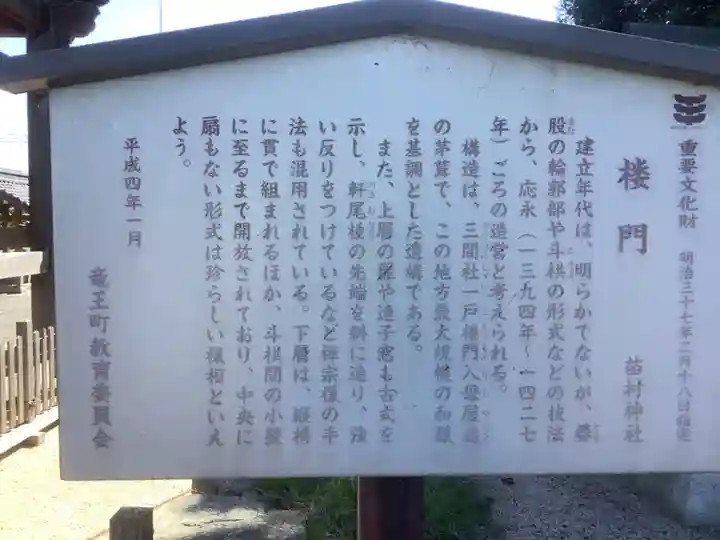 重要文化財 明治三十七年二月十八日指定
楼門 苗村神社
建立年代は、明らかでないが、蟇
股の輪郭部や斗栱の形式などの技法
から、応永(一三九四年〜一四二七
年)ごろの造営と考えられる。
構造は、三間社一戸楼門入母屋造
の茅葺で、この地方最大規模の和様
を基調とした遺構である。
また、上層の扉や連子窓も古式を
示し、軒尾棰の先端を斜に造り、強
い反りをつけているなど禅宗様の手
法も混用されている。下層は、縦横
に貫で組まれるほか、斗栱間の小壁
に至るまで開放されており、中央に
扇もない形式は珍らしい様相といえ
よう。
平成四年一月
竜王町教育委員会